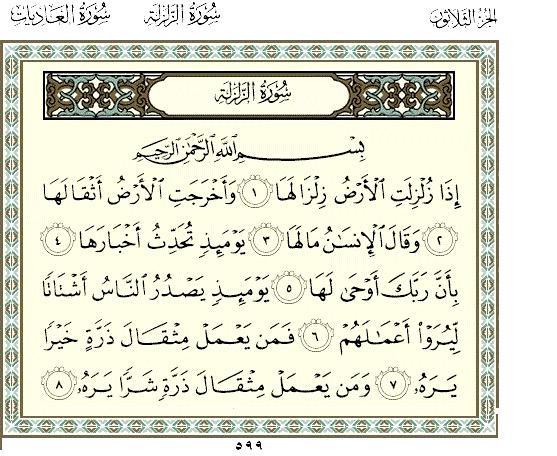 الجزء الثلاثون سورة الزلزلة سورة العاديات
سورة الزلزلة
بسم الله الرحمن الرحيم
إِذَا زُلْزِلَتِ ٱلْأَرْضُ زِلْزَالَهَا ١ وَأَخْرَجَتِ ٱلْأَرْضُ أَثْقَالَهَا
٢ وَقَالَ ٱلْإِنسَٰنُ مَا لَهَا ٣ يَوْمَئِذٍ تُحَدِّثُ أَخْبَارَهَا ٤
بِأَنَّ رَبَّكَ أَوْحَىٰ لَهَا ٥ يَوْمَئِذٍ يَصْدُرُ ٱلنَّاسُ أَشْتَاتًا
لِّيُرَوْا۟ أَعْمَٰلَهُمْ ٦ فَمَن يَعْمَلْ مِثْقَالَ ذَرَّةٍ خَيْرًا
يَرَهُۥ ٧ وَمَن يَعْمَلْ مِثْقَالَ ذَرَّةٍ شَرًّا يَرَهُۥ ٨
٥٩٩